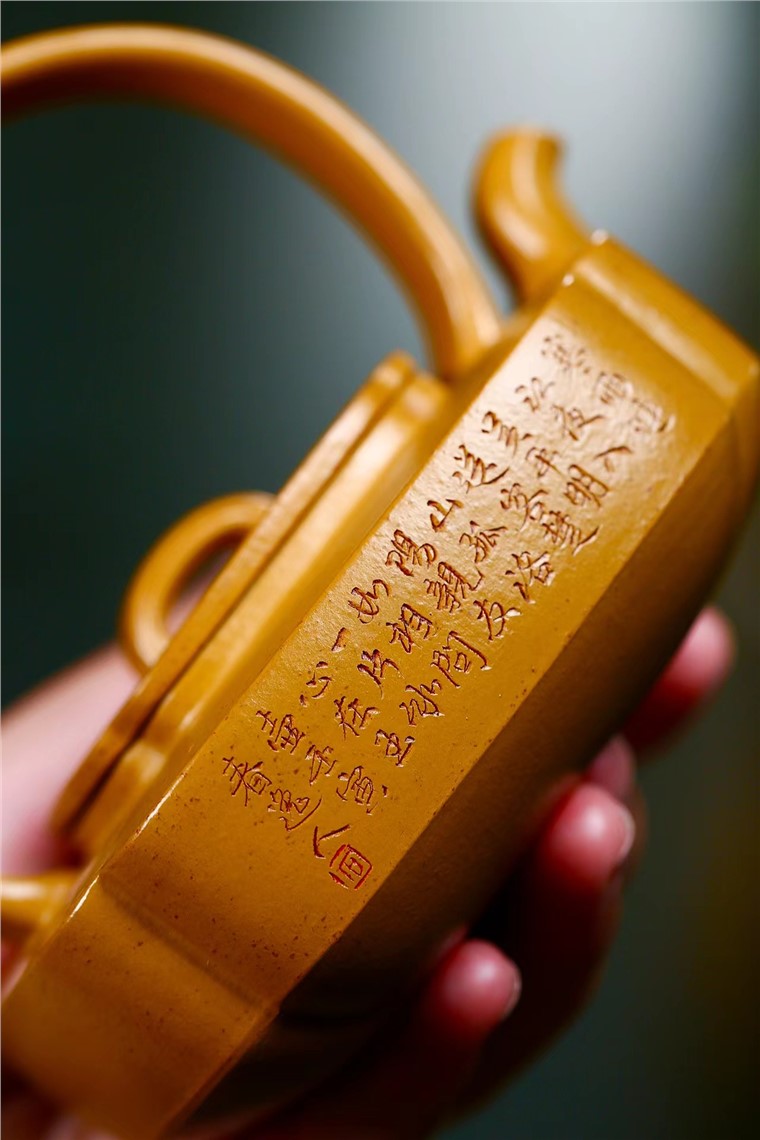 寒雨連
江夜入
吴平明
送客楚
山孤洛
陽親友
如相問
一片冰
心在玉
壺壬寅
春人